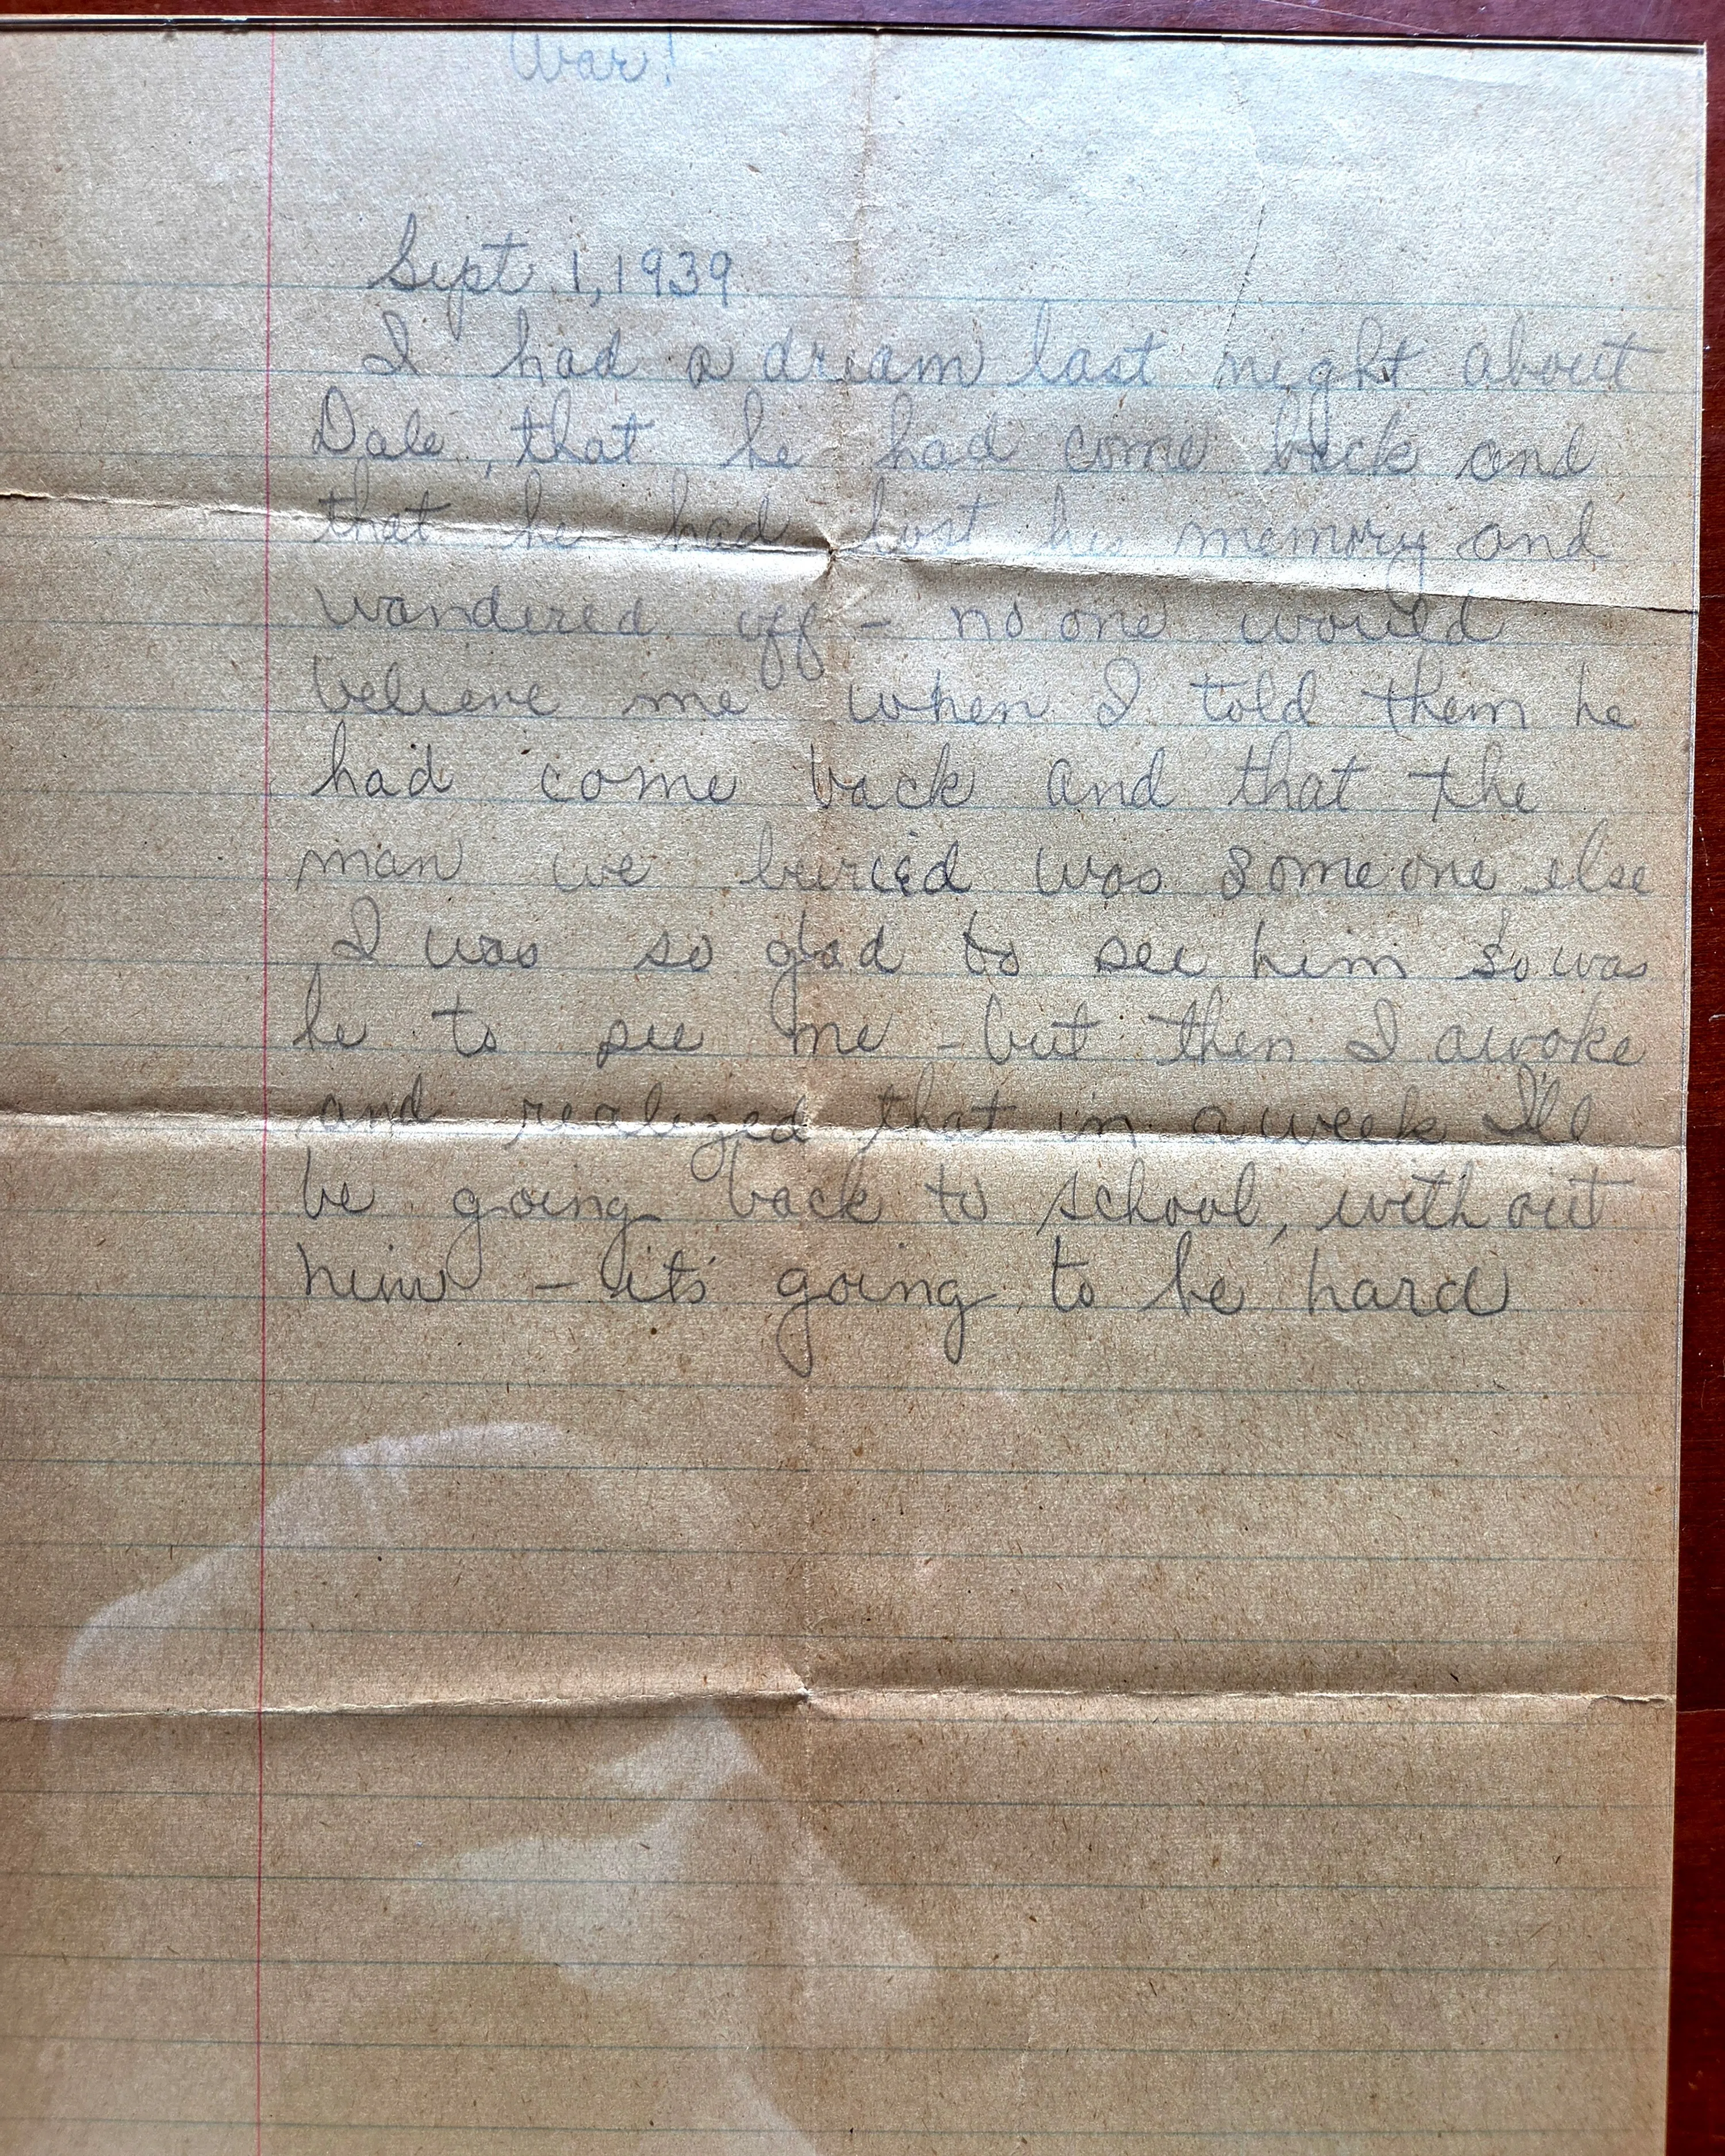 War!
Sept 1, 1939
I had a dream last night about
Dale, that he had come back and
that he had lost his memory and
wandered off - no one would
believe me when I told them he
had come back and that the
man we buried was someone else
I was so glad to see him so was
he to see me - but then I awoke
and realized that in a week I'll
be going back to school, without
him - it's going to be hard